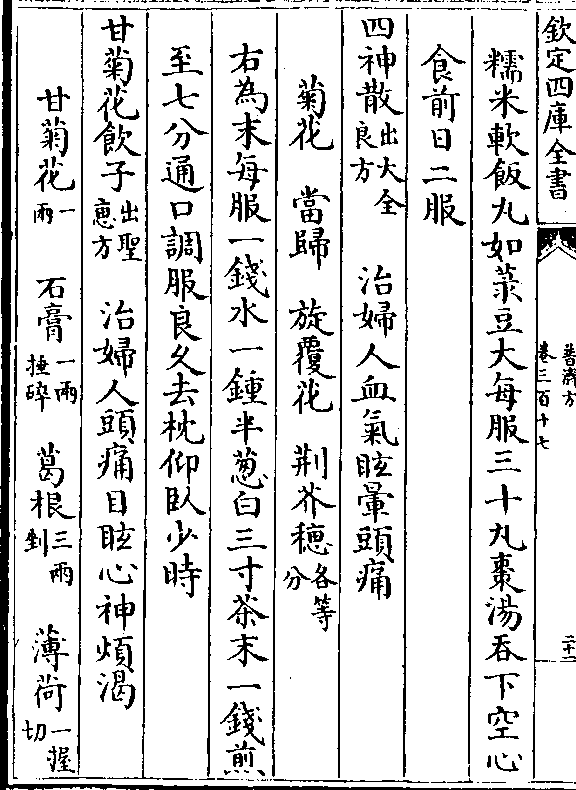 欽定四庫全書
普濟方
卷三百十七
二十二
糯米軟飯丸如菉豆大每服三十丸棗湯吞下空心
食前日二服
四神散出大全良方　治婦人血氣眩暈頭痛
菊花　當歸　旋覆花　荆芥穗各等分
右為末每服一錢水一鍾半葱白三寸茶末一錢煎
至七分通口調服良久去枕仰臥少時
甘菊花飲子出聖惠方　治婦人頭痛目眩心神煩渴
甘菊花一兩　石膏一兩捶碎　葛根三兩剉　薄荷一握切